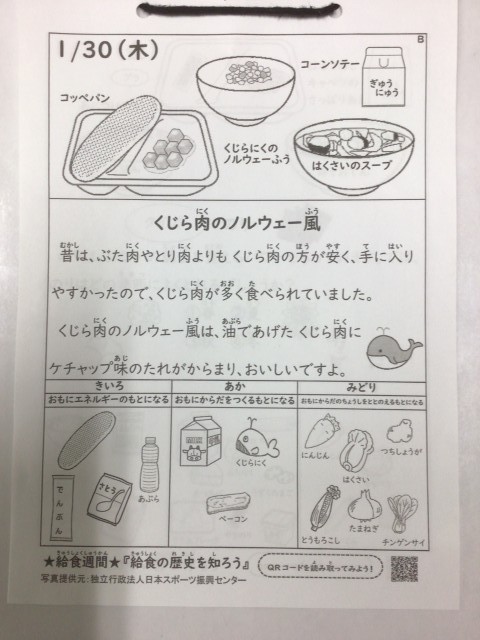 B
1/30(木)
コーンソテー
ぎゅう
にゅう
コッペパン
くじらにくの
ノルウェーふう
はくさいのスープ
くじら肉のノルウェー風
昔は、ぶた肉やとり肉よりも くじら肉の方が安く、手に入り
やすかったので、くじら肉が多く食べられていました。
くじら肉のノルウェー風は、油であげた くじら肉に
ケチャップ味のたれがからまり、おいしいですよ。
きいろ
おもにエネルギーのもとになる
あか
おもにからだをつくるもとになる
みどり
おもにからだのちょうしをととのえるもとになる
でんぷん
さとう
あぶら
くじらにく
ベーコン
にんじん
はくさい
つちしょうが
とうもろこし
たまねぎ
チンゲンサイ
★給食週間★『給食の歴史を知ろう』
写真提供元:独立行政法人日本スポーツ振興センター
QRコードを読み取ってみよう!